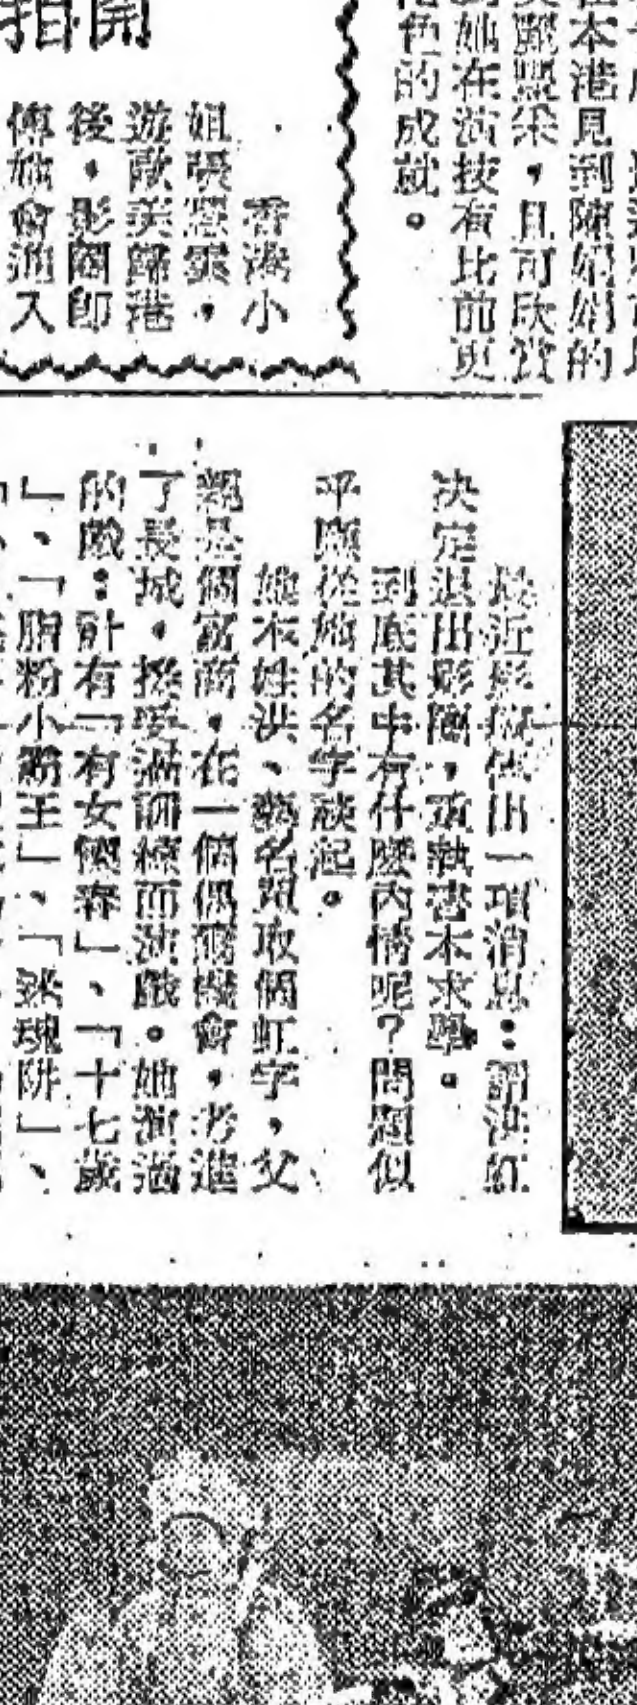 在本港見到陳娟娟的
艷豐采，且可欣賞
她在演技有比前更
色的成就。
開
香港小
姐張慧雲，
遊歐美歸港
後，影圈即
傳她會進入
最近影圈傳出一項消息：謂洪虹
決定退出影圈，重執書本求學。
到底其中有什麼內情呢？問題似
乎應從她的名字談起。
她本姓洪、藝名單取個虹字，父
親是個富商，在一個偶爾機會，考進
了長城，接受滿師練而演戲。她演過
的戲：計有「有女懷春」、「十七歲
」、「脂粉小霸王」、「迷魂阱」、